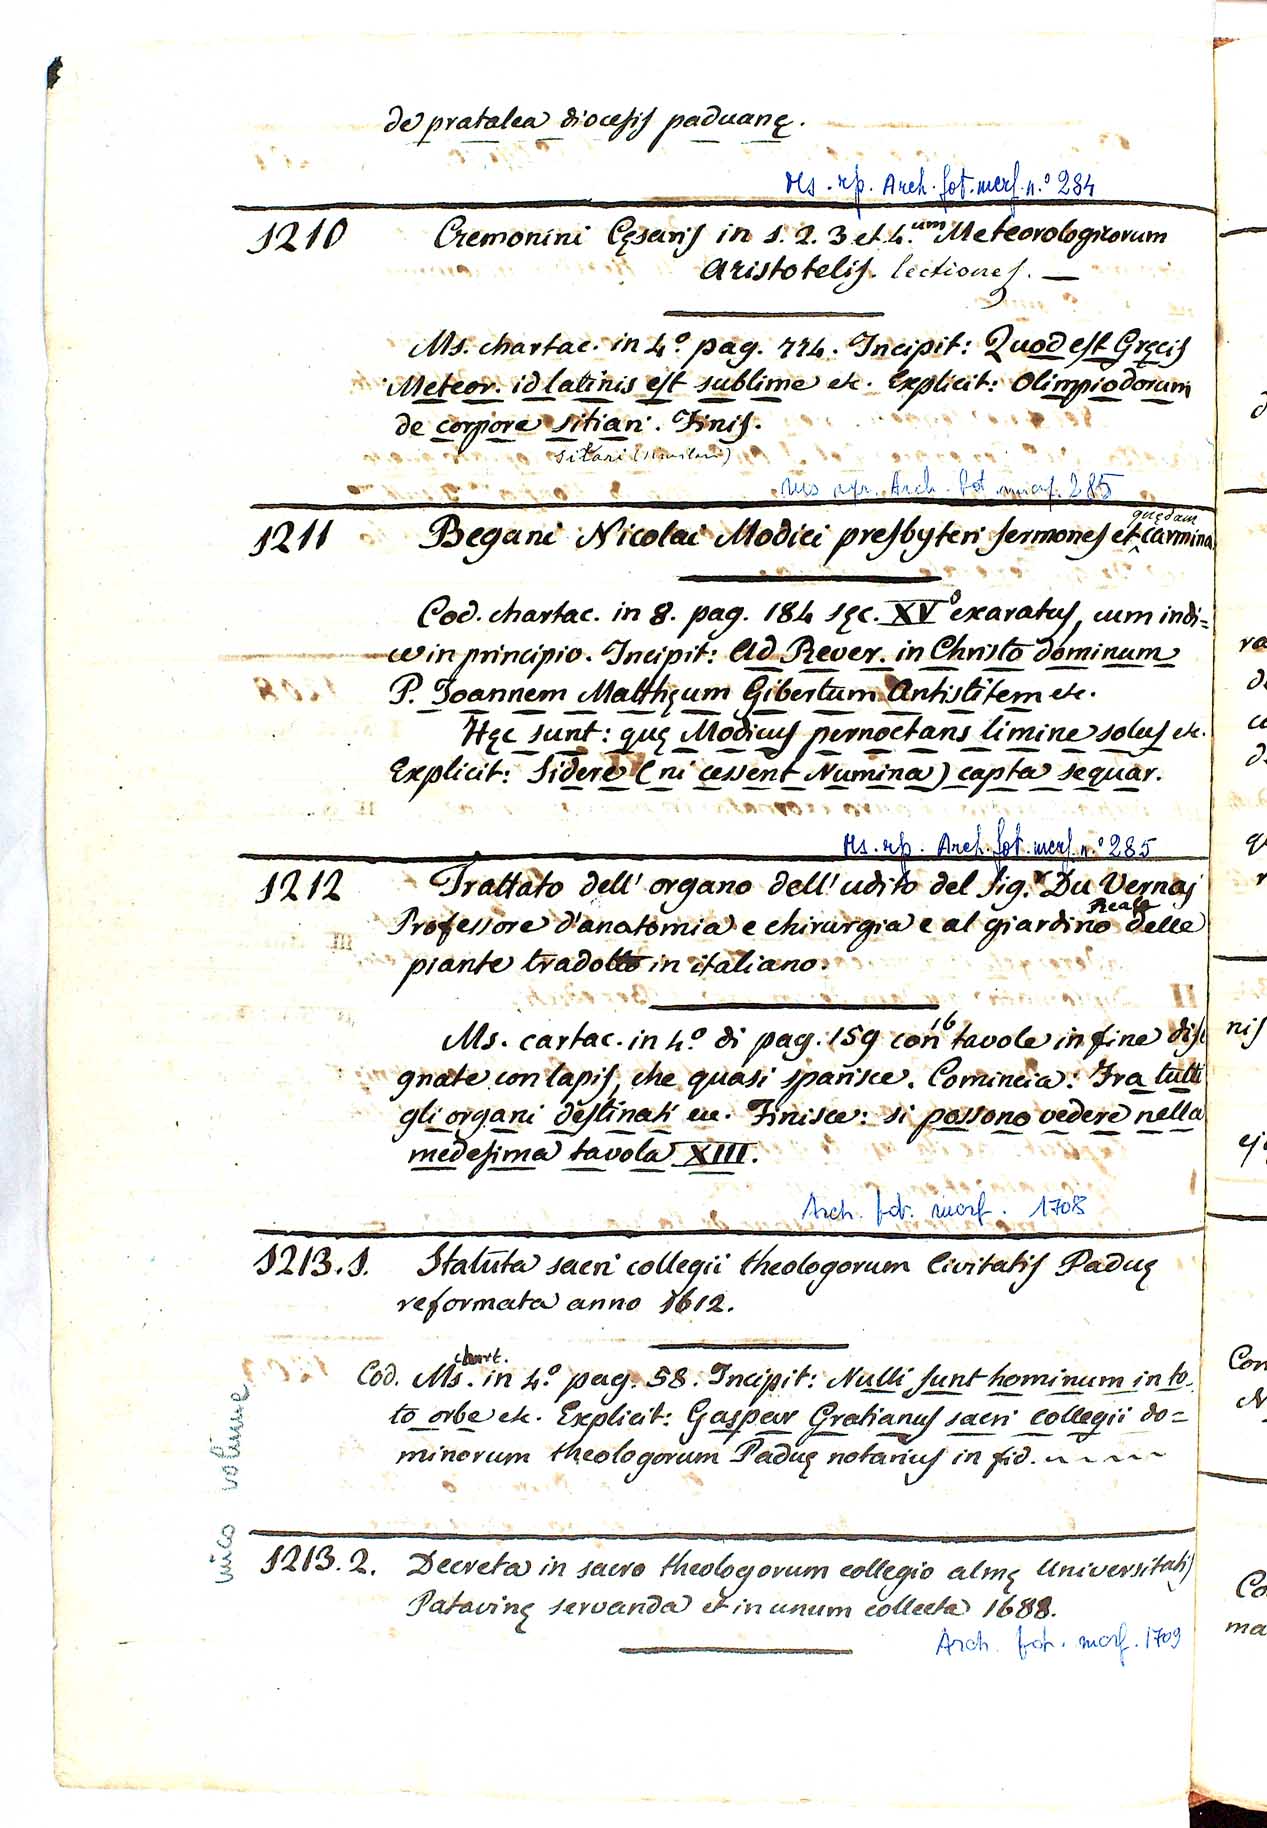 de pratalea diocesis paduanę.
Ms. rp. Arch. fot. morf. n.º 284
1210 Cremonini Cęsaris in 1. 2. 3 et 4.um Meteorologicorum
Aristotelis. lectiones. —
Ms. chartac. in 4.º pag. 774. Incipit: Quod est Gręcis
Meteor. id latinis est sublime etc. Explicit: Olimpiodorum
de corpore sitiari. Finis.
sitari (similari)
Ms rp. Arch. fot. morf. 285
quędam
1211 Begani Nicolai Modici presbyteri sermones et carmina
Cod. chartac. in 8. pag. 184 sęc. XVº exaratus, cum indi=
ce in principio. Incipit: Ad Rever. in Christo dominum
P. Joannem Matthęum Gibertum Antistitem etc.
Hęc sunt: quę Modicus pernoctans limine solus etc.
Explicit: Sidere (ni cessent Numina) capta sequar.
Ms. rp. Arch. fot. morf. n.º 285
1212 Trattato dell' organo dell' udito del sig.r Du Vernaj
Reale
Professore d'anatomia e chirurgia e al giardino delle
piante tradotto in italiano.
16
Ms. cartac. in 4.º di pag. 159 con tavole in fine dise
gnate con lapis, che quasi sparisce. Comincia: Fra tutti
gli organi destinati ec. Finisce: si possono vedere nella
medesima tavola XIII.
Arch. fot. morf. 1708
1213.1. Statuta sacri collegii theologorum Civitatis Paduę
reformata anno 1612.
chart.
Cod. Ms. in 4.º pag. 58. Incipit: Nulli sunt hominum in to
to orbe etc. Explicit: Gaspar Gratianus sacri collegii do=
minorum theologorum Paduę notarius in fid.
unico volume
1213.2. Decreta in sacro theologorum collegio almę Universitatis
Patavinę servanda et in unum collecta 1688.
Arch. fot. morf. 1709